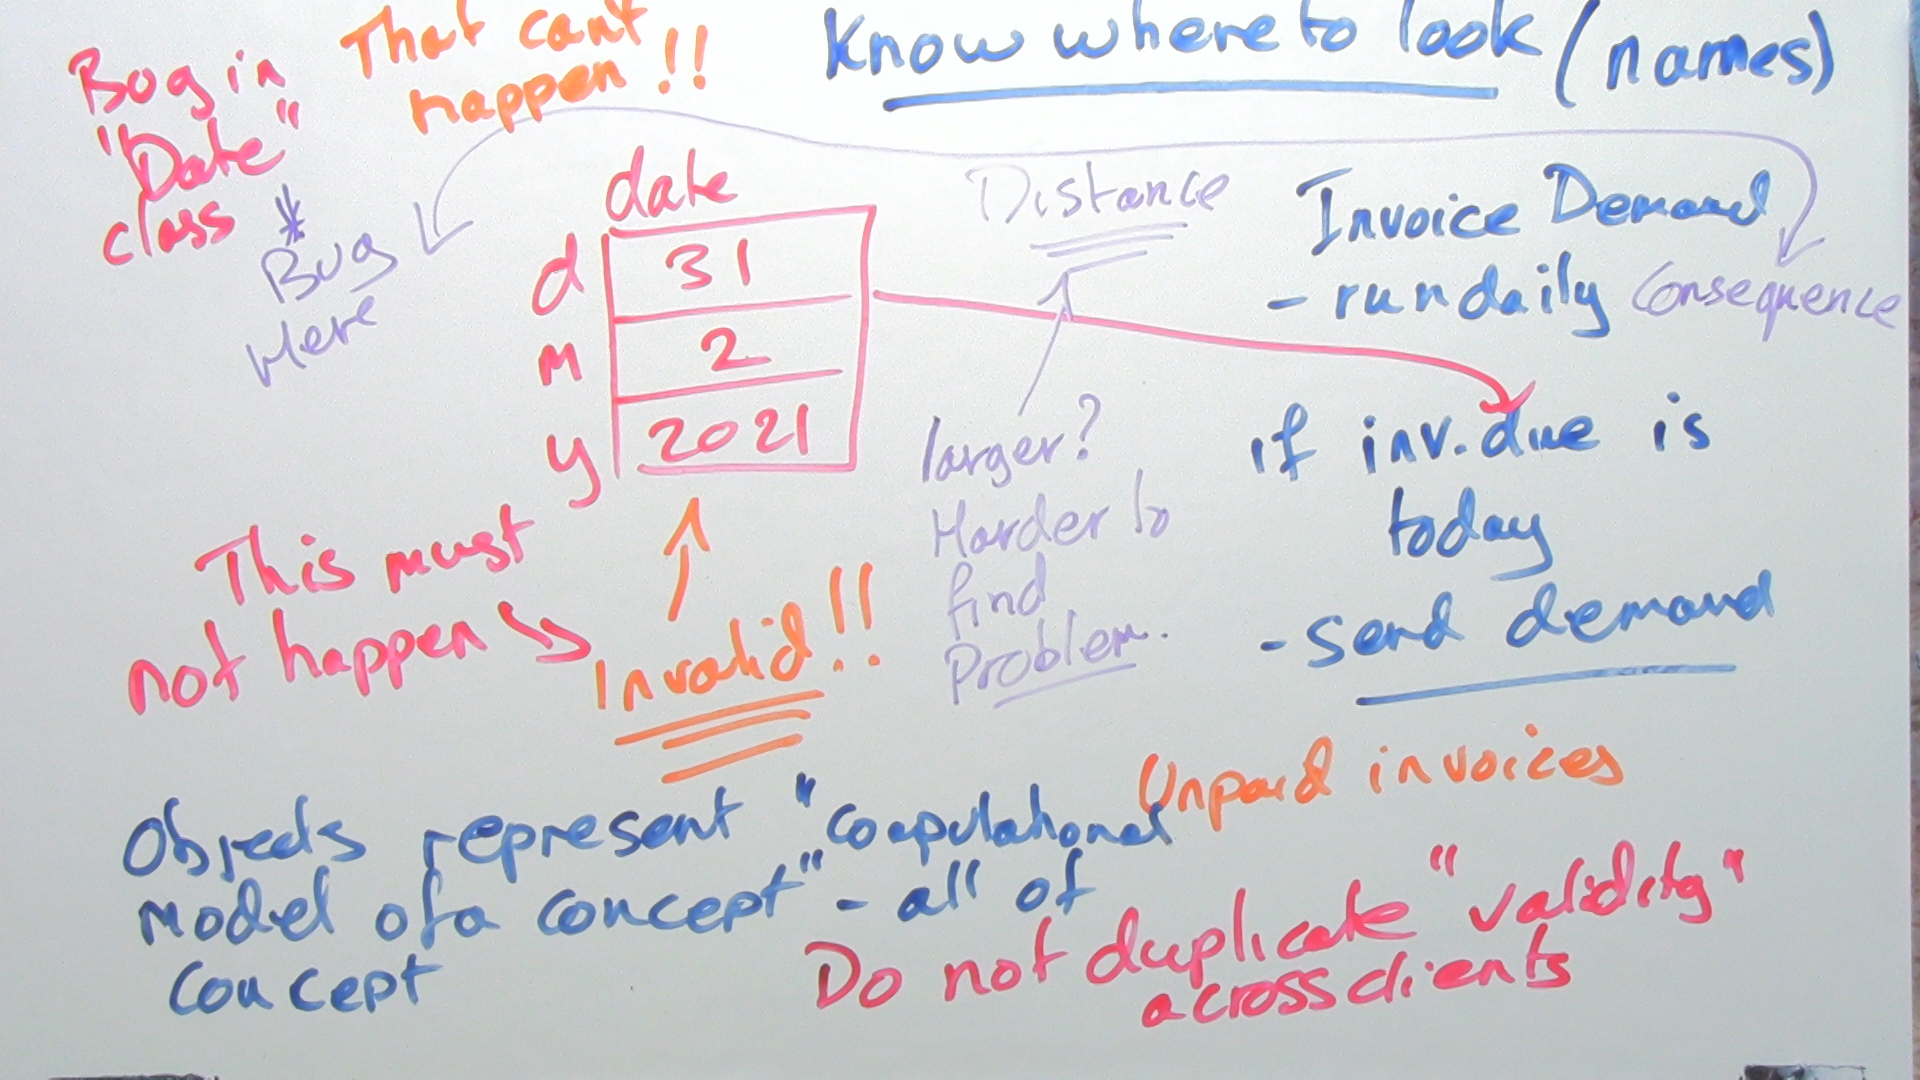 Bug in
"Date"
class
That can't
happen !!
Know where to look (names)
*
Bug
Here
date
d 31
m 2
y 2021
Distance
larger?
Harder to
find
Problem.
Invoice Demand
- run daily
Consequence
if inv.due is
today
- send demand
This must
not happen
Invalid!!
Unpaid invoices
Objects represent "computational
model of a concept" - all of
concept
Do not duplicate "validity"
across clients